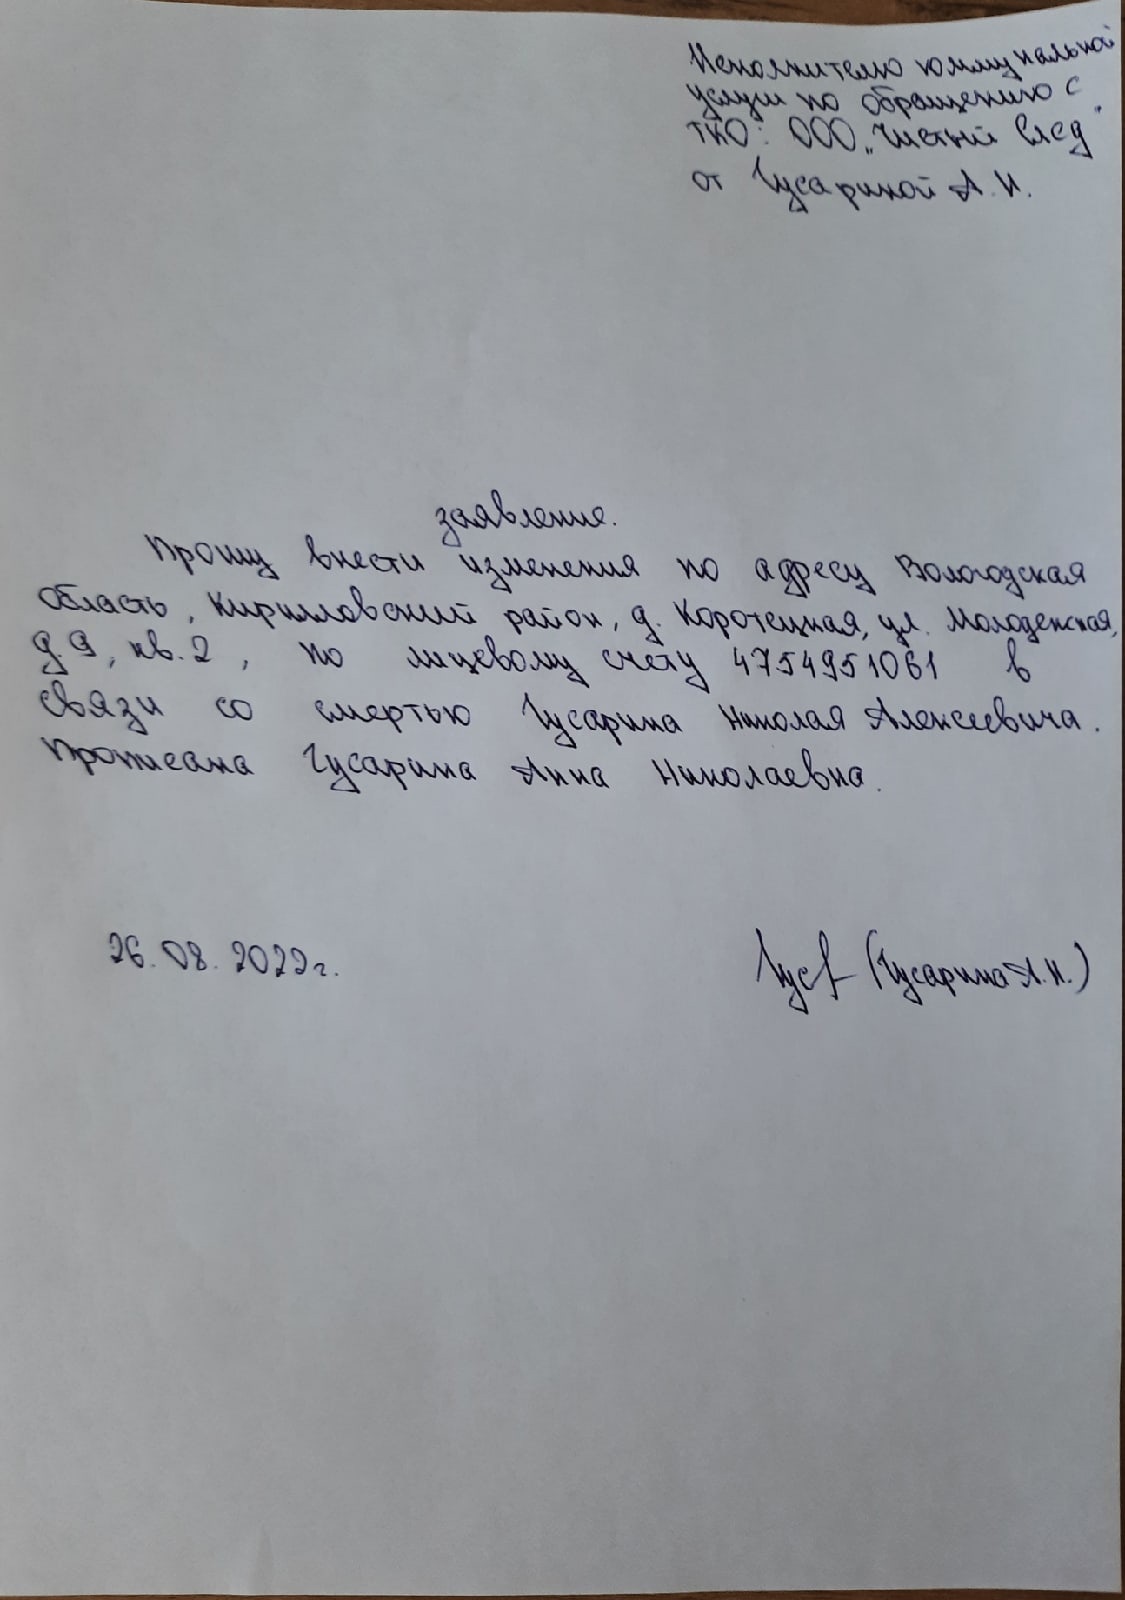 Исполнителю коммунальной
услуги по обращению с
ТКО: ООО „Чистый След"
от Гусариной А. Н.
заявление.
Прошу внести изменения по адресу Вологодская
область, Кирилловский район, д. Коротецкая, ул. Молодежная,
д. 9, кв. 2, по лицевому счету 4754951061 в
связи со смертью Гусарина Николая Алексеевича.
Прописана Гусарина Анна Николаевна.
26. 08. 2022г.
Гусе (Гусарина А. Н.)